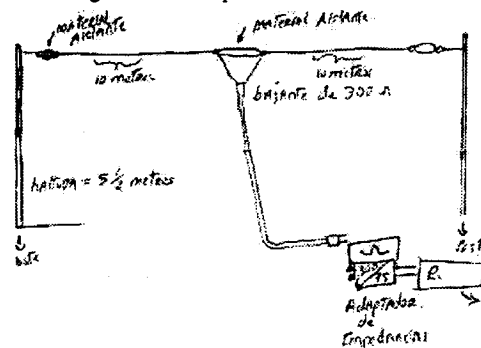 material
Aislante
material Aislante
10 metros
10 metros
bajante de 300 Ω
Altura = 5 1/2 metros
Ω
300
75
Adaptador
de
Impedancias